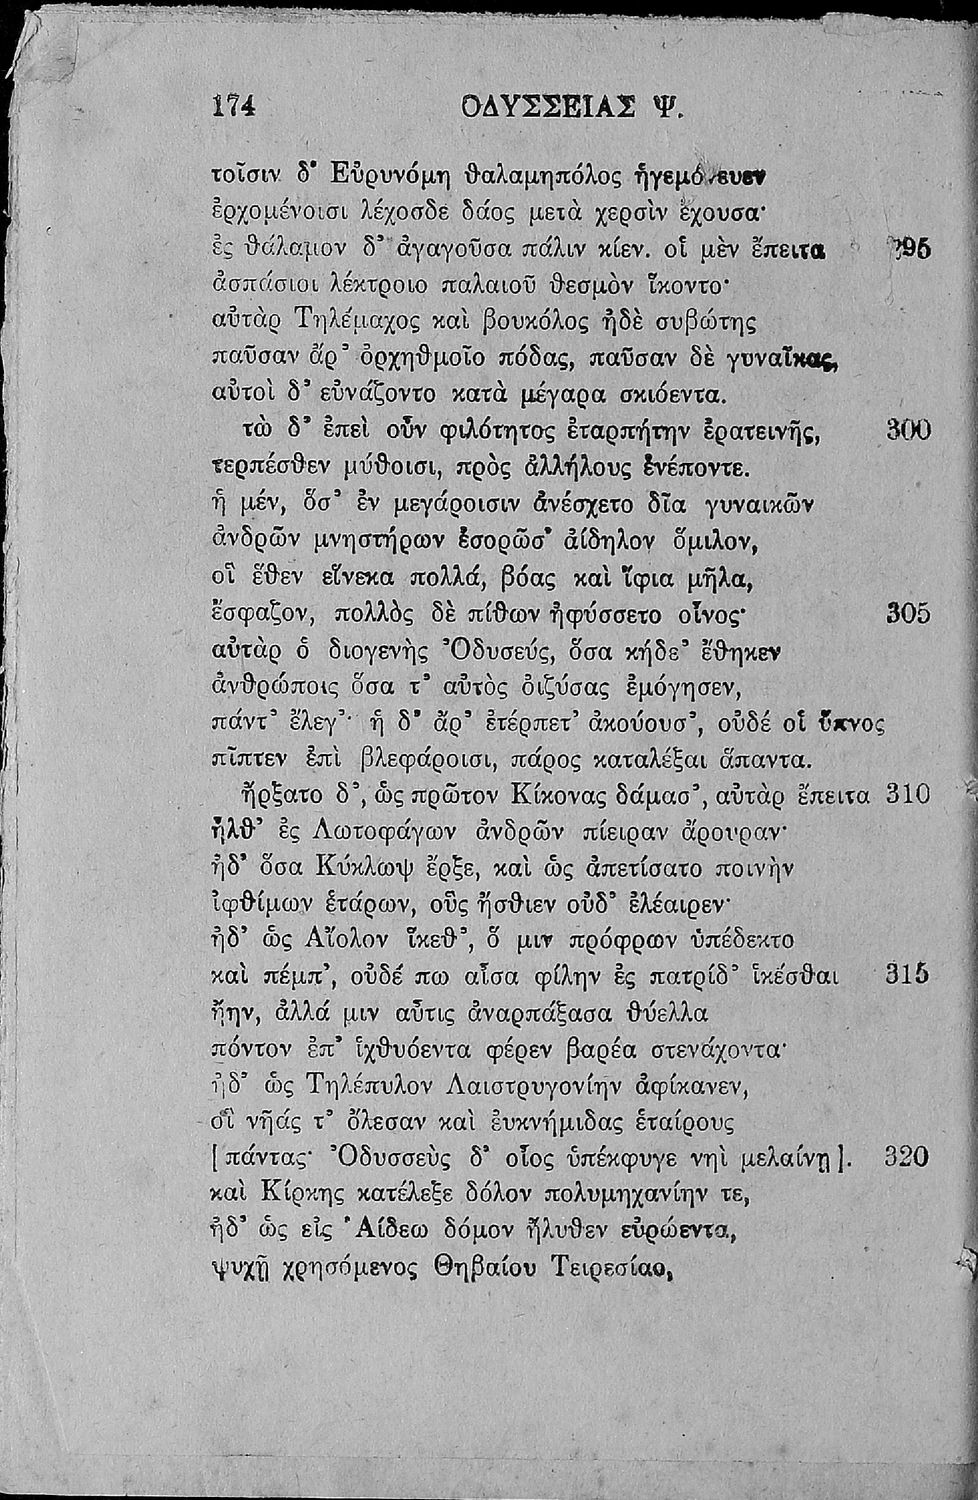 174 ΟΔΥΣΣΕΙΑΣ Ψ.
τοῖσιν δ' Εὐρυνόμη θαλαμηπόλος ἡγεμόνευεν
ἐρχομένοισι λέχοσδε δάος μετὰ χερσὶν ἔχουσα·
ἐς θάλαμον δ' ἀγαγοῦσα πάλιν κίεν. οἱ μὲν ἔπειτα 295
ἀσπάσιοι λέκτροιο παλαιοῦ θεσμὸν ἵκοντο·
αὐτὰρ Τηλέμαχος καὶ βουκόλος ἠδὲ συβώτης
παῦσαν ἄρ' ὀρχηθμοῖο πόδας, παῦσαν δὲ γυναῖκας,
αὐτοὶ δ' εὐνάζοντο κατὰ μέγαρα σκιόεντα.
τὼ δ' ἐπεὶ οὖν φιλότητος ἐταρπήτην ἐρατεινῆς, 300
τερπέσθεν μύθοισι, πρὸς ἀλλήλους ἐνέποντε.
ἡ μέν, ὅσ' ἐν μεγάροισιν ἀνέσχετο δῖα γυναικῶν
ἀνδρῶν μνηστήρων ἐσορῶσ' ἀίδηλον ὅμιλον,
οἳ ἕθεν εἵνεκα πολλά, βόας καὶ ἴφια μῆλα,
ἔσφαζον, πολλὸς δὲ πίθων ἠφύσσετο οἶνος· 305
αὐτὰρ ὁ διογενὴς Ὀδυσεύς, ὅσα κήδε' ἔθηκεν
ἀνθρώποις ὅσα τ' αὐτὸς ὀιζύσας ἐμόγησεν,
πάντ' ἔλεγ'· ἡ δ' ἄρ' ἐτέρπετ' ἀκούουσ', οὐδέ οἱ ὕπνος
πῖπτεν ἐπὶ βλεφάροισι, πάρος καταλέξαι ἅπαντα.
ἤρξατο δ', ὡς πρῶτον Κίκονας δάμασ', αὐτὰρ ἔπειτα 310
ἦλθ' ἐς Λωτοφάγων ἀνδρῶν πίειραν ἄρουραν·
ἠδ' ὅσα Κύκλωψ ἔρξε, καὶ ὡς ἀπετίσατο ποινὴν
ἰφθίμων ἑτάρων, οὓς ἤσθιεν οὐδ' ἐλέαιρεν·
ἠδ' ὡς Αἴολον ἵκεθ', ὅ μιν πρόφρων ὑπέδεκτο
καὶ πέμπ', οὐδέ πω αἶσα φίλην ἐς πατρίδ' ἱκέσθαι 315
ἤην, ἀλλά μιν αὖτις ἀναρπάξασα θύελλα
πόντον ἐπ' ἰχθυόεντα φέρεν βαρέα στενάχοντα·
ἠδ' ὡς Τηλέπυλον Λαιστρυγονίην ἀφίκανεν,
οἳ νῆάς τ' ὄλεσαν καὶ ἐυκνήμιδας ἑταίρους
[πάντας· Ὀδυσσεὺς δ' οἶος ὑπέκφυγε νηὶ μελαίνῃ]. 320
καὶ Κίρκης κατέλεξε δόλον πολυμηχανίην τε,
ἠδ' ὡς εἰς Ἀίδεω δόμον ἤλυθεν εὐρώεντα,
ψυχῇ χρησόμενος Θηβαίου Τειρεσίαο,